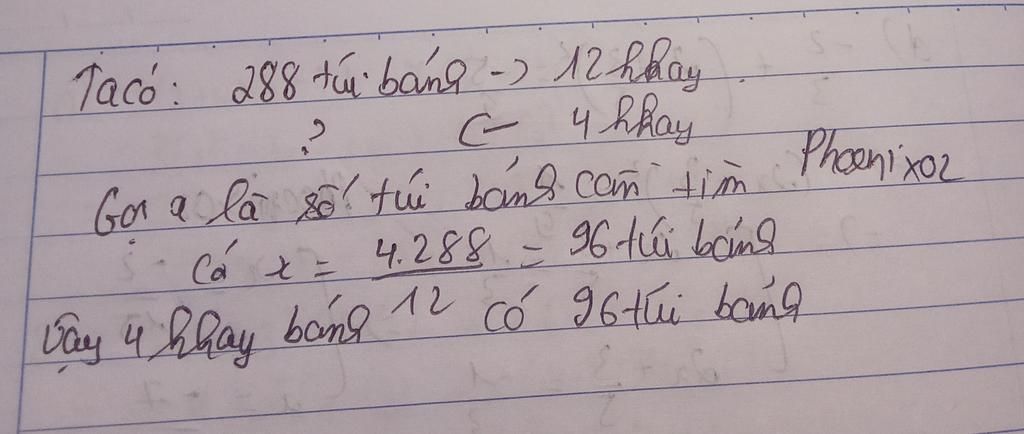 Ta có: 288 túi bánh -> 12 khay
? <- 4 khay
Gọi a là số túi bánh cần tìm Phoenix02
Có x = 4.288/12 = 96 túi bánh
Vậy 4 khay bánh có 96 túi bánh